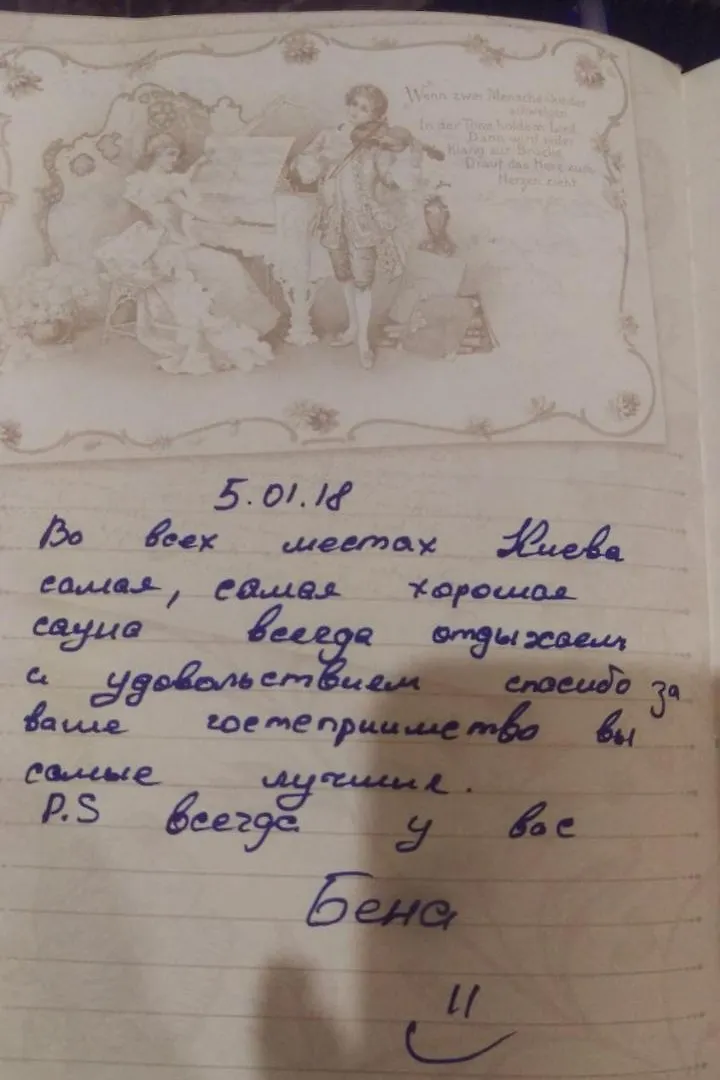 Wenn zwei Menschen
In der Töne holdem Lied
Dann wird jeder
Klang zur Brücke
Drauf das Herz zum
Herzen zieht
5.01.18
Во всех местах Киева
самая, самая хорошая
сауна всегда отдыхаем
с удовольствием спасибо за
ваше гостеприимство вы
самые лучшие.
P.S всегда у вас
Бена